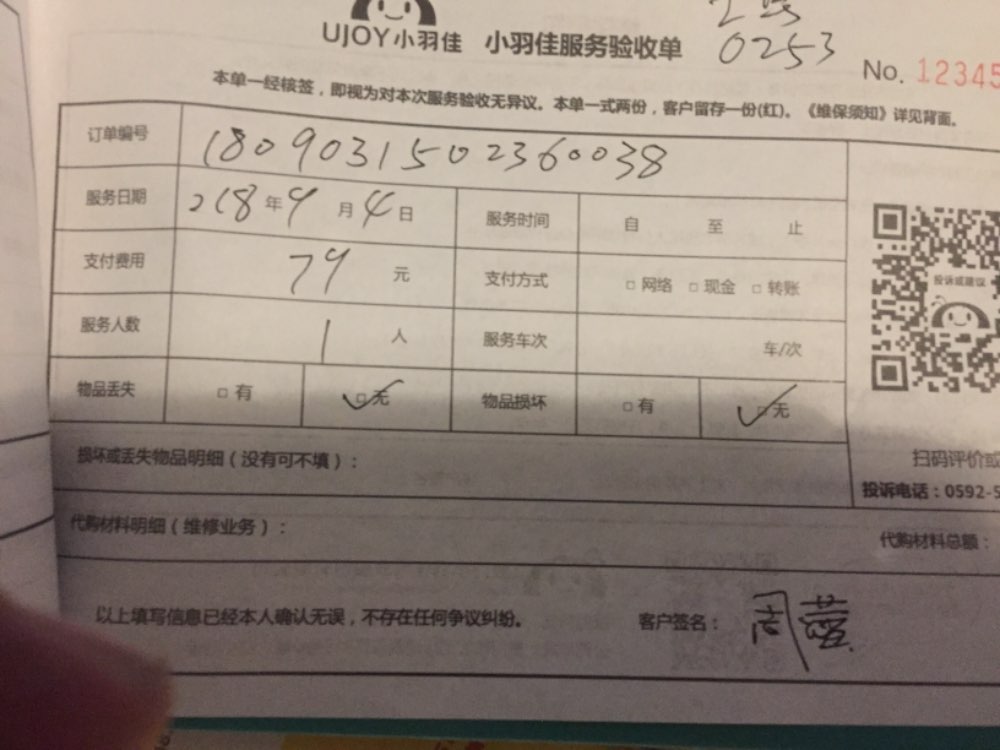 UJOY小羽佳 小羽佳服务验收单
0253
No. 12345
本单一经核签，即视为对本次服务验收无异议。本单一式两份，客户留存一份(红)。《维保须知》详见背面。
订单编号 1809031502360038
服务日期 218年9月4日 服务时间 自 至 止
支付费用 79元 支付方式 □网络 □现金 □转账
投诉或建议
服务人数 1人 服务车次 车/次
物品丢失 □有 ☑无 物品损坏 □有 ☑无
损坏或丢失物品明细（没有可不填）：
扫码评价或
投诉电话：0592-5
代购材料明细（维修业务）：
代购材料总额：
以上填写信息已经本人确认无误，不存在任何争议纠纷。 客户签名：周